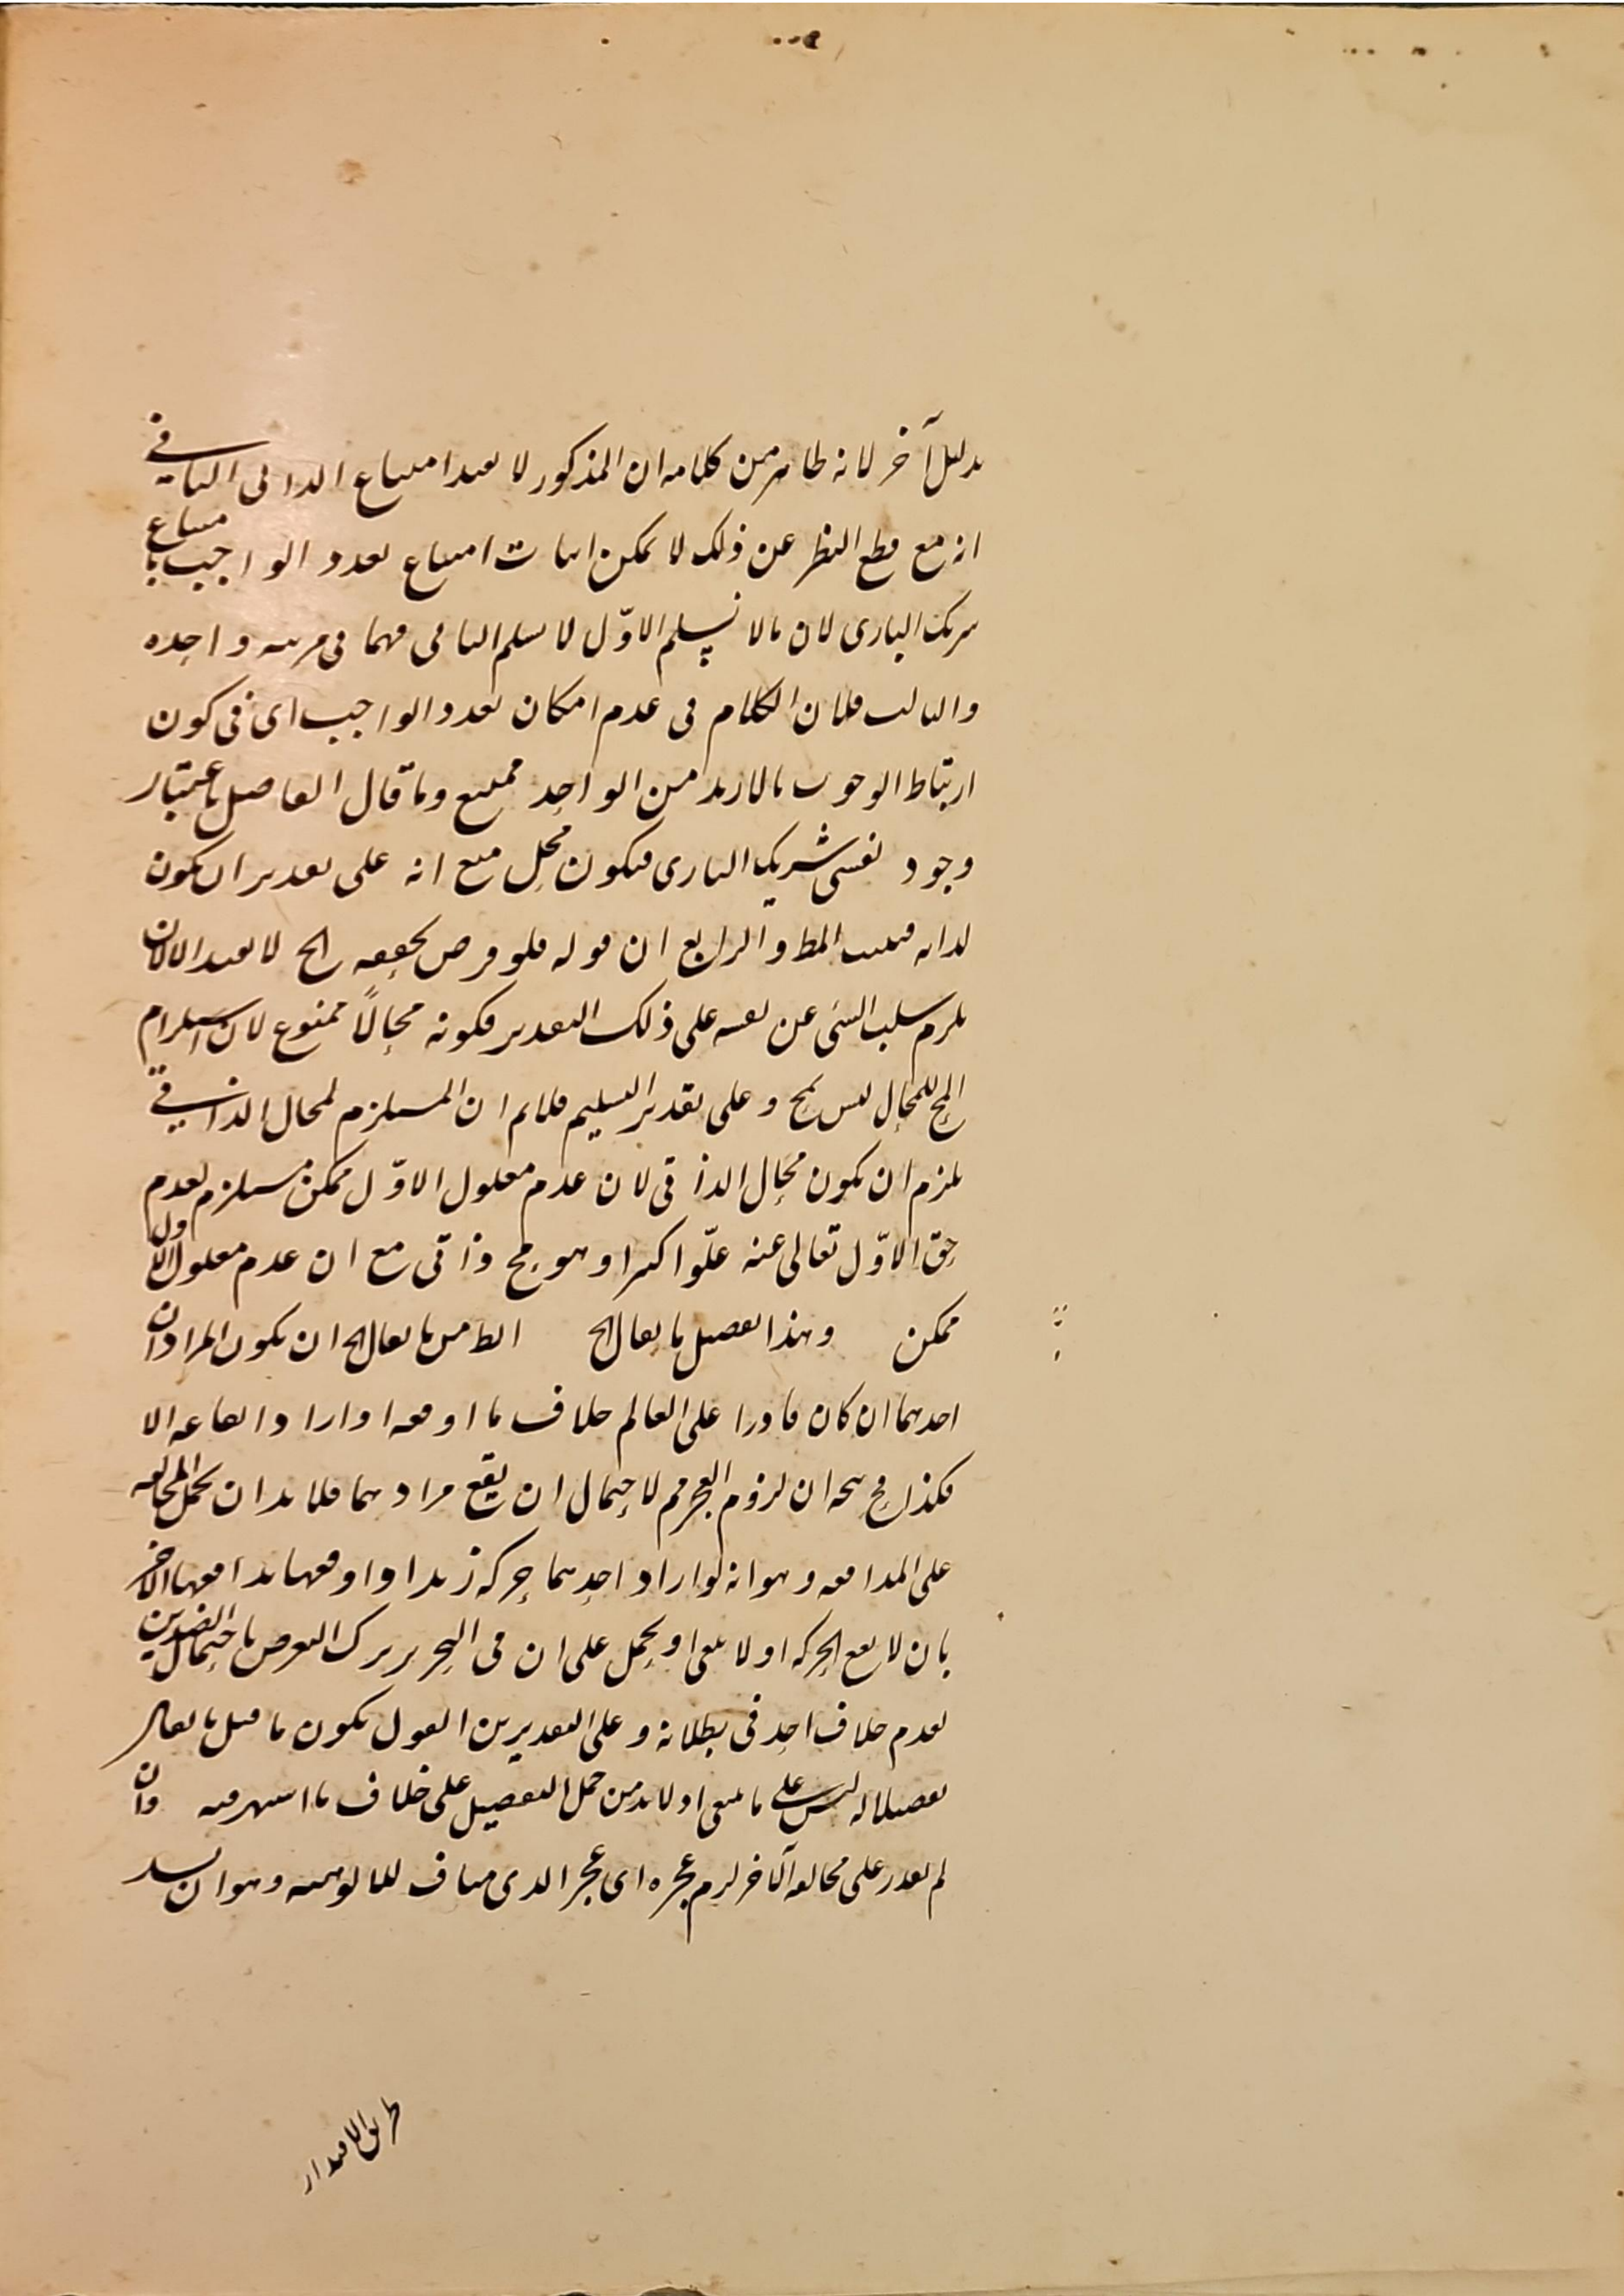 بدليل آخر لانه ظاهر من كلامه ان المذكور لا يفيد امتناع الذاتى الثانى
انه مع قطع النظر عن ذلك لا يمكن اثبات امتناع تعدد الواجب بامتناع
شريك البارى لان مالا نسلم الاوّل لا نسلم الثانى فهما فى مرتبه واحده
والثالث فلان الكلام فى عدم امكان تعدد الواجب اى فى كون
ارتباط الوجوب بالازيد من الواحد ممتنع وما قال الفاضل باعتبار
وجود نفس شريك البارى فيكون محل منع انه على تقدير ان يكون
لذاته فيثبت المط والرابع ان قوله فلو فرض تحققه الخ لا يفيد الا ان
يلزم سلب الشى عن نفسه على ذلك التقدير فكونه محالاً ممنوع لان استلزام
المح للمحال ليس بمح وعلى تقدير التسليم فلانم ان المستلزم لمحال الذاتى
يلزم ان يكون محال الذاتى لان عدم معلول الاوّل ممكن مستلزم لعدم
حق الاوّل تعالى عنه علّوا كبيرا وهو مح ذاتى مع ان عدم معلول الاول
ممكن وهذا تفصيل ما يقال الخ الظ من ما يقال الخ ان يكون المراد ان
احدهما ان كان قادرا على العالم خلاف ما اوقعه او اراد ايقاعه الا
فكذا فح يتجه ان لزوم العجز مم لاحتمال ان يقع مرادهما فلا بد ان يحمل المخالفه
على المدافعه وهو انه لو اراد احدهما حركه زيد او اوقعها يدافعها الآخر
بان لا يقع الحركه او لا يبقى او يحمل على ان فى التحرير ترك التعرض باحتمال الضدين
لعدم خلاف احد فى بطلانه وعلى التقديرين القول بكون ما قيل ما يقال
تفصيلا له ليس على ما ينبغى اذ لا بد من حمل التفصيل على خلاف ما اشتهر فيه وان
لم يقدر على مخالفه الآخر لزم عجزه اى عجز الذى مناف للالوهيه وهو ان يسد
طريق الاقتدار